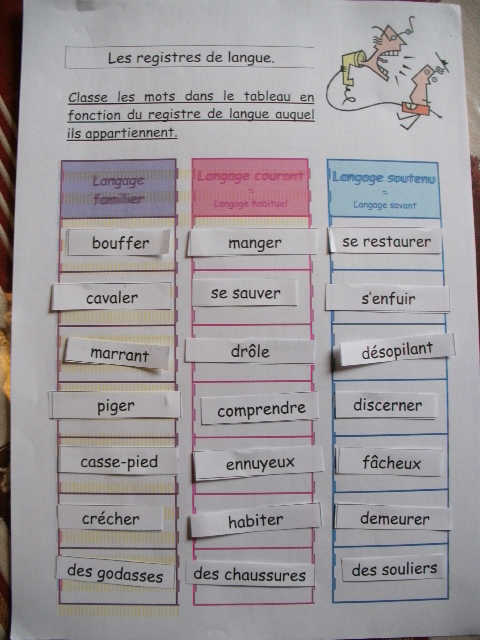 Les registres de langue.
Classe les mots dans le tableau en
fonction du registre de langue auquel
ils appartiennent.
Langage
familier
Langage courant
=
Langage habituel
Langage soutenu
=
Langage savant
bouffer manger se restaurer
cavaler se sauver s'enfuir
marrant drôle désopilant
piger comprendre discerner
casse-pied ennuyeux fâcheux
crécher habiter demeurer
des godasses des chaussures des souliers